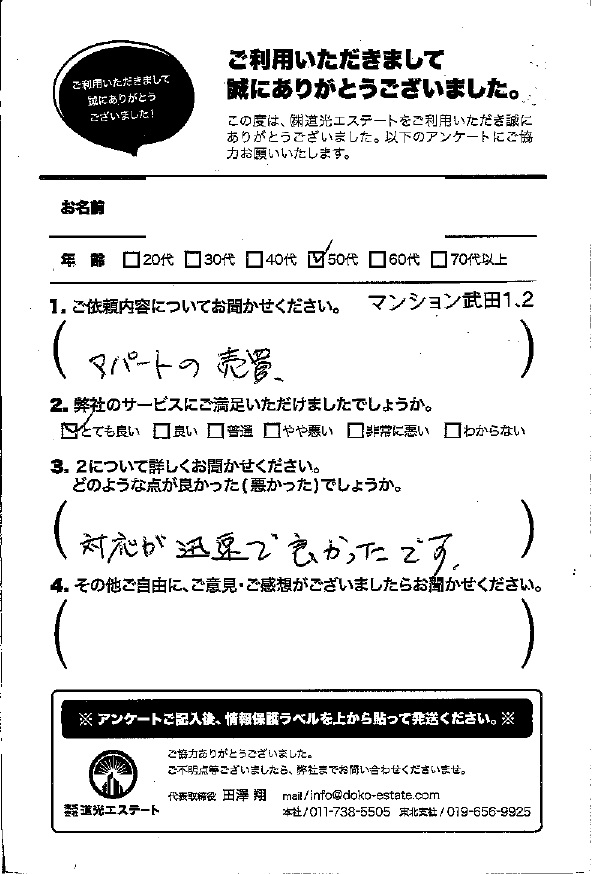 ご利用いただきまして
誠にありがとう
ございました!
ご利用いただきまして
誠にありがとうございました。
この度は、㈱道光エステートをご利用いただき誠に
ありがとうございました。以下のアンケートにご協
力お願いいたします。
お名前
年 齢 □20代 □30代 □40代 ☑50代 □60代 □70代以上
1. ご依頼内容についてお聞かせください。 マンション武田1.2
アパートの売買、
2. 弊社のサービスにご満足いただけましたでしょうか。
☑とても良い □良い □普通 □やや悪い □非常に悪い □わからない
3. 2について詳しくお聞かせください。
どのような点が良かった(悪かった)でしょうか。
対応が迅速で良かったです。
4. その他ご自由に、ご意見・ご感想がございましたらお聞かせください。
※ アンケートご記入後、情報保護ラベルを上から貼って発送ください。※
ご協力ありがとうございました。
ご不明点等ございましたら、弊社までお問い合わせくださいませ。
代表取締役 田澤 翔 mail/info@doko-estate.com
株式会社 道光エステート 本社/011-738-5505 東北支社/019-656-9925